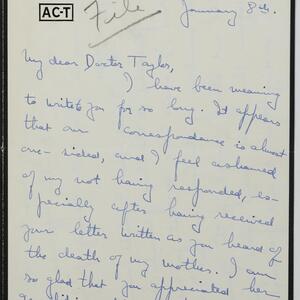 AC-T
File
January 8th.
My dear Doctor Taylor,
I have been meaning
to write to you for so long. It appears
that our correspondance is almost
one-sided, and I feel ashamed
of my not having responded, es-
pecially after having received
your letter written as you heard of
the death of my mother. I am
so glad that you appreciated her